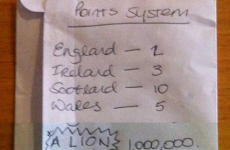 Points System
England — 1
Ireland — 3
Scotland — 10
Wales — 5
A LION 1,000,000.